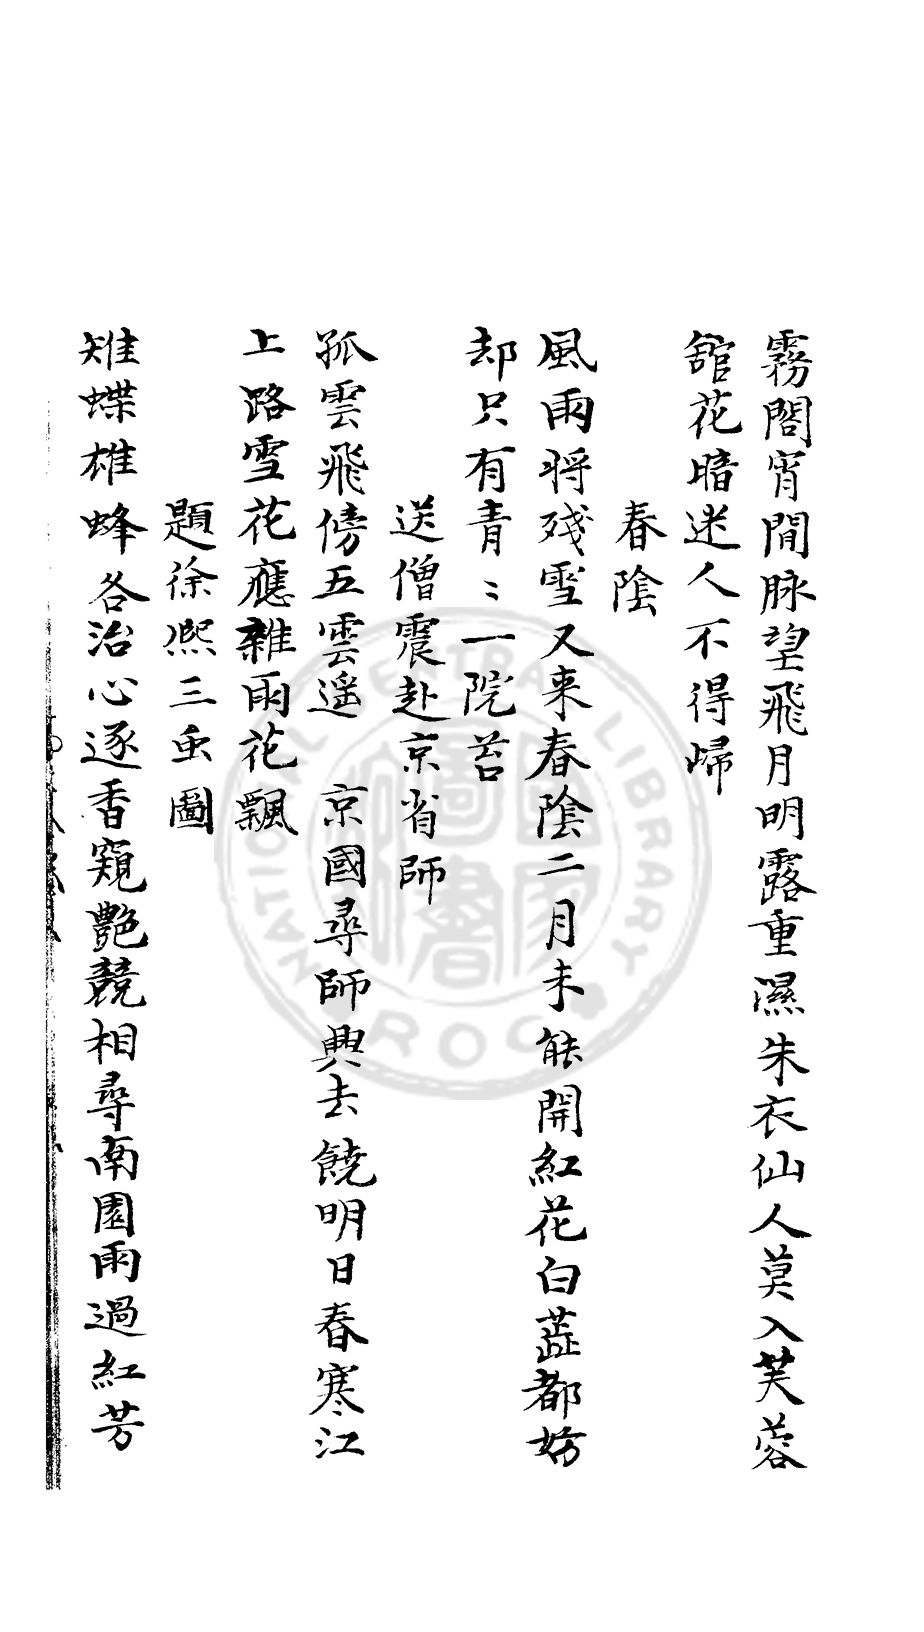 霧閣宵間脉望飛月明露重濕朱衣仙人莫入芙蓉
舘花暗迷人不得歸
春陰
風雨将殘雪又来春陰二月未能開紅花白蕋都妨
却只有青〻一院苔
送僧震赴京省師
孤雲飛傍五雲遥 京國尋師興去饒明日春寒江
上路雪花應雜雨花飄
題徐熈三虫圖
雄蝶雄蜂各治心逐香窺艶競相尋南園雨過紅芳
NATIONAL CENTRAL LIBRARY
ROC